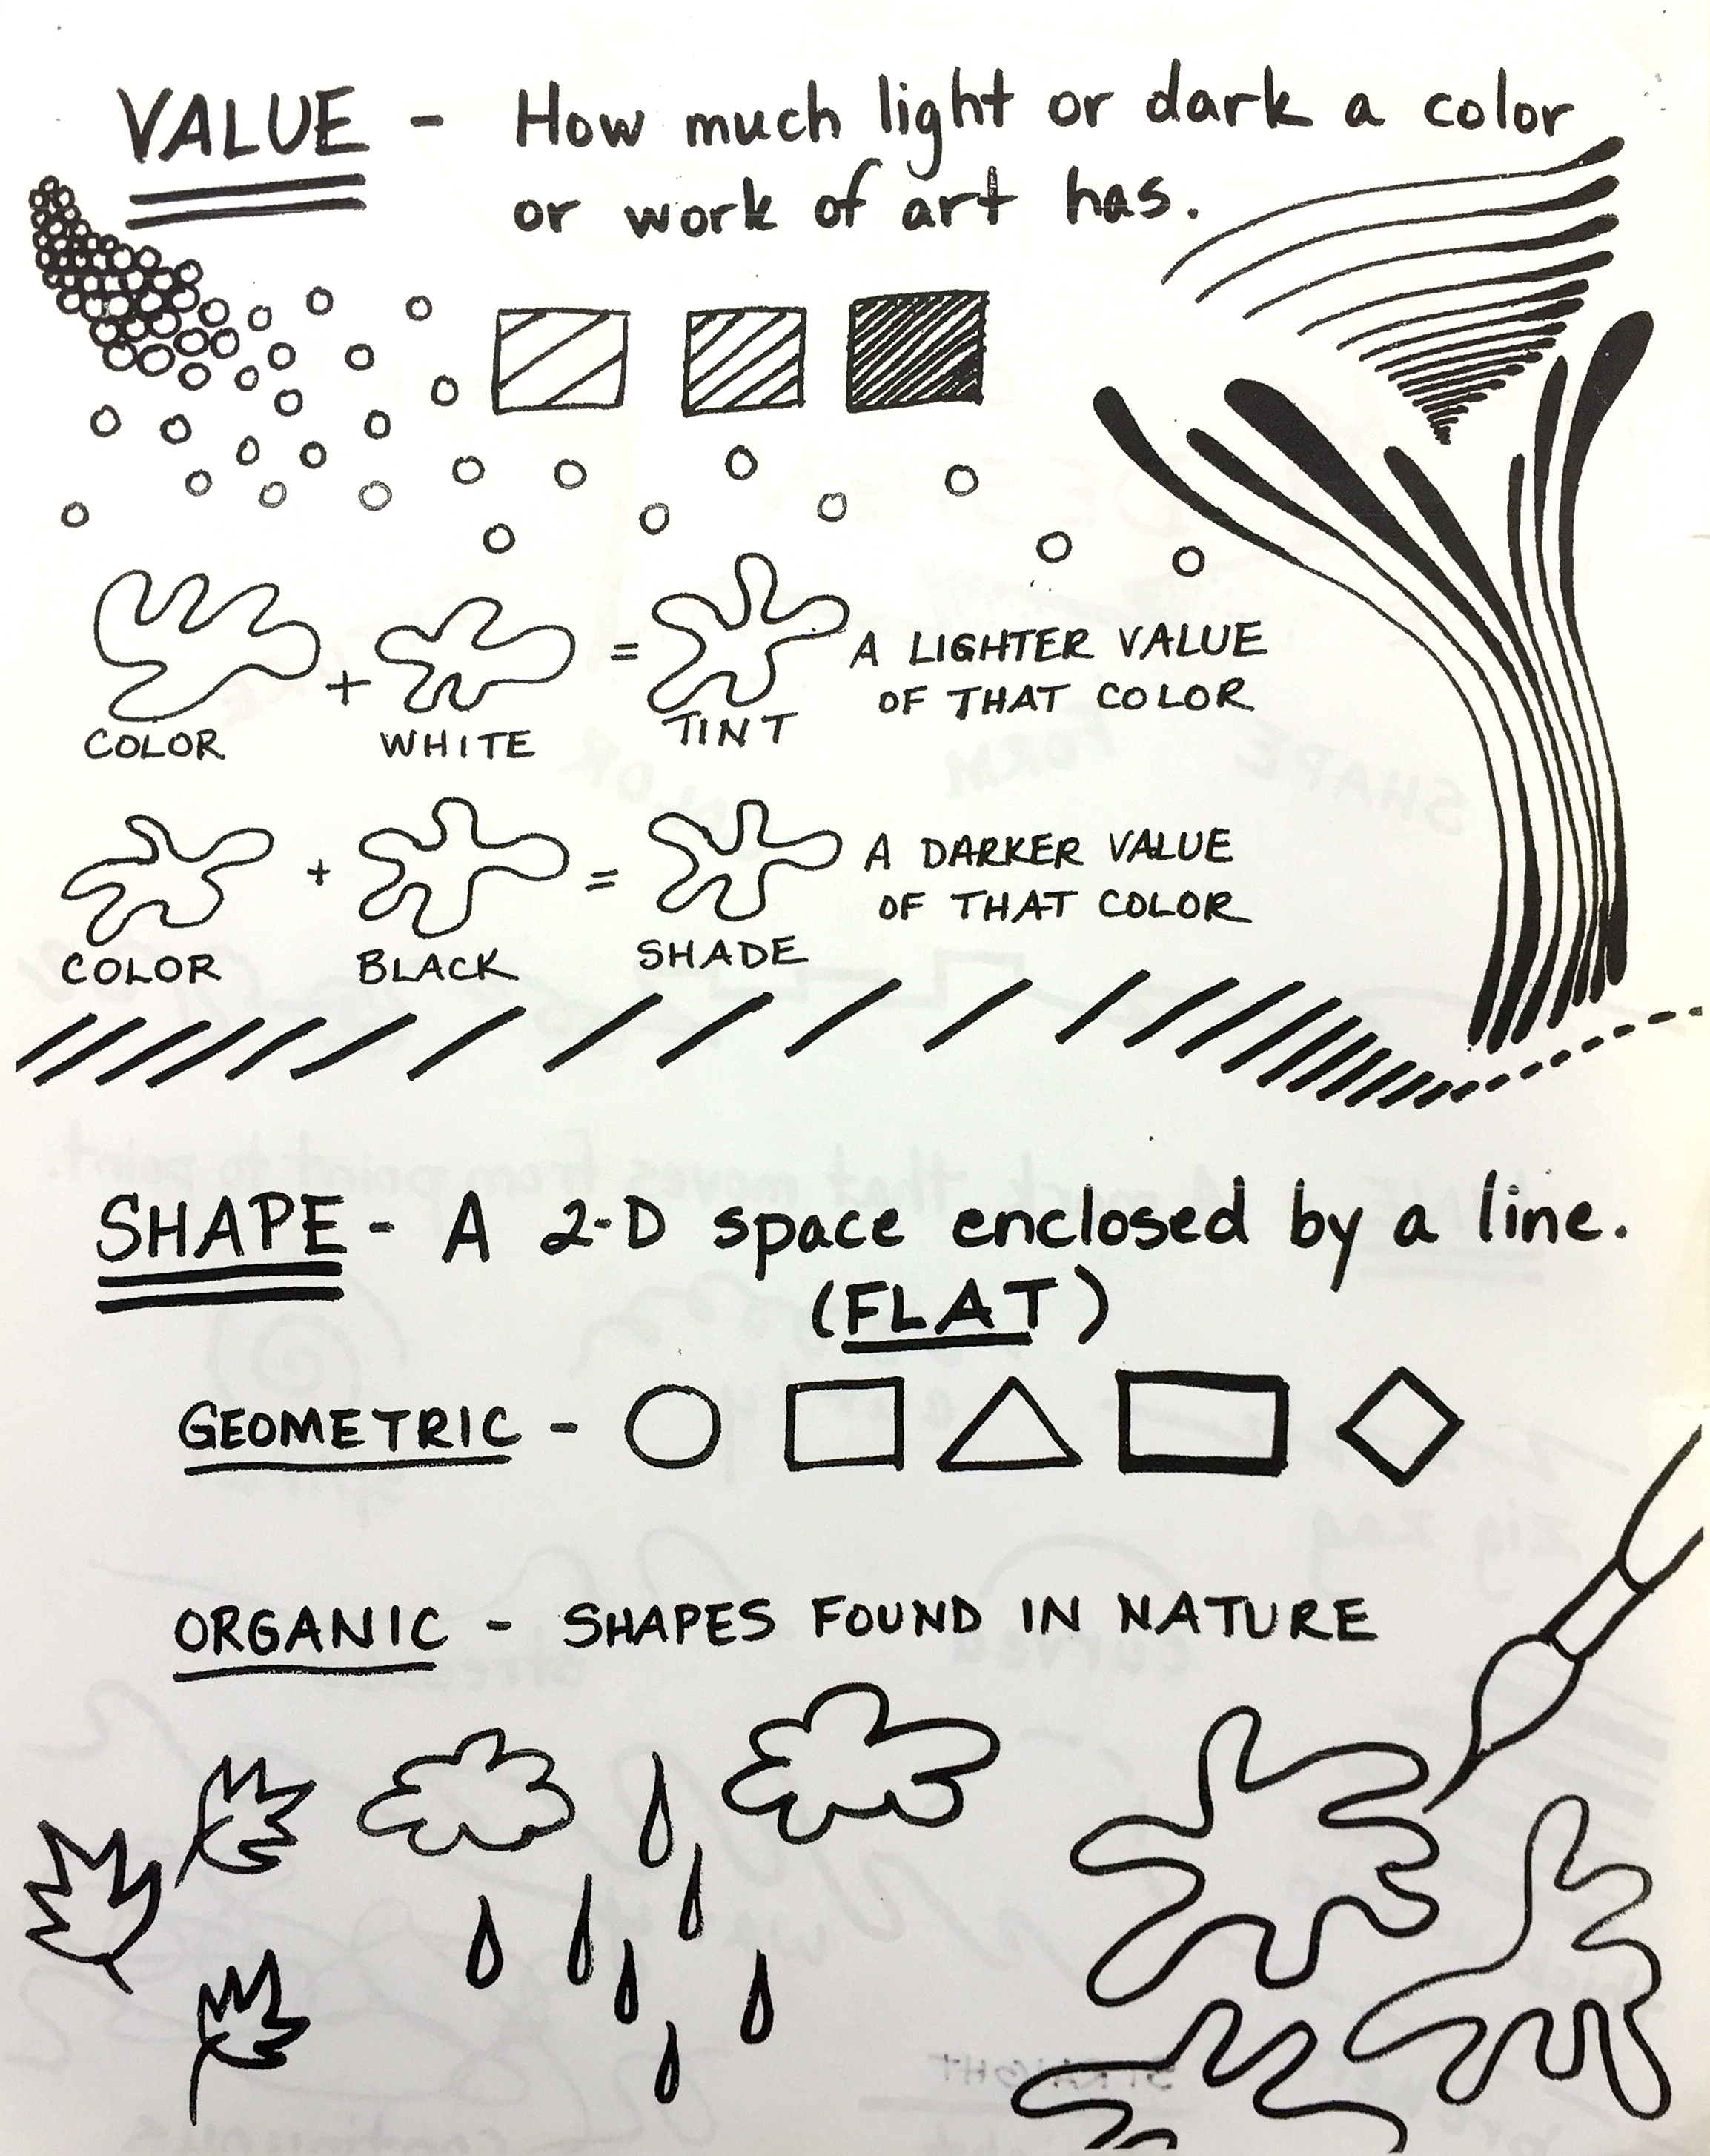 VALUE - How much light or dark a color
or work of art has.
+ = A LIGHTER VALUE
OF THAT COLOR
COLOR WHITE TINT
+ = A DARKER VALUE
OF THAT COLOR
COLOR BLACK SHADE
SHAPE - A 2-D space enclosed by a line.
(FLAT)
GEOMETRIC -
ORGANIC - SHAPES FOUND IN NATURE